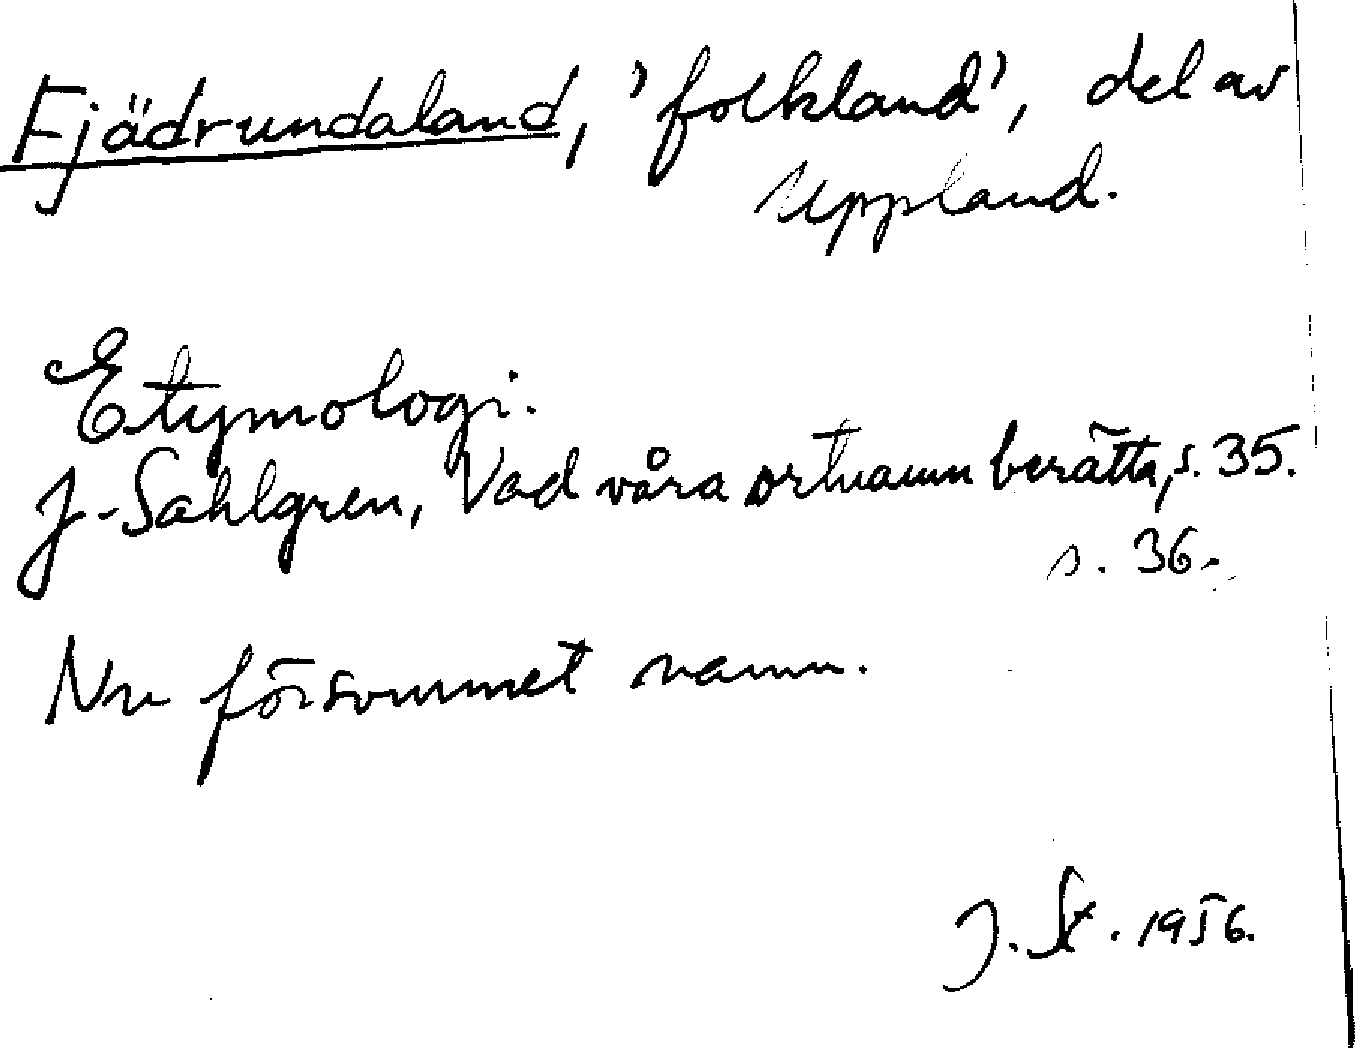 Fjädrundaland, 'folkland', del av
Uppland.
Etymologi.
J. Sahlgren, Vad våra ortnamn berätta, s. 35.
s. 36.
Nu försvunnet namn.
J. St. 1956.